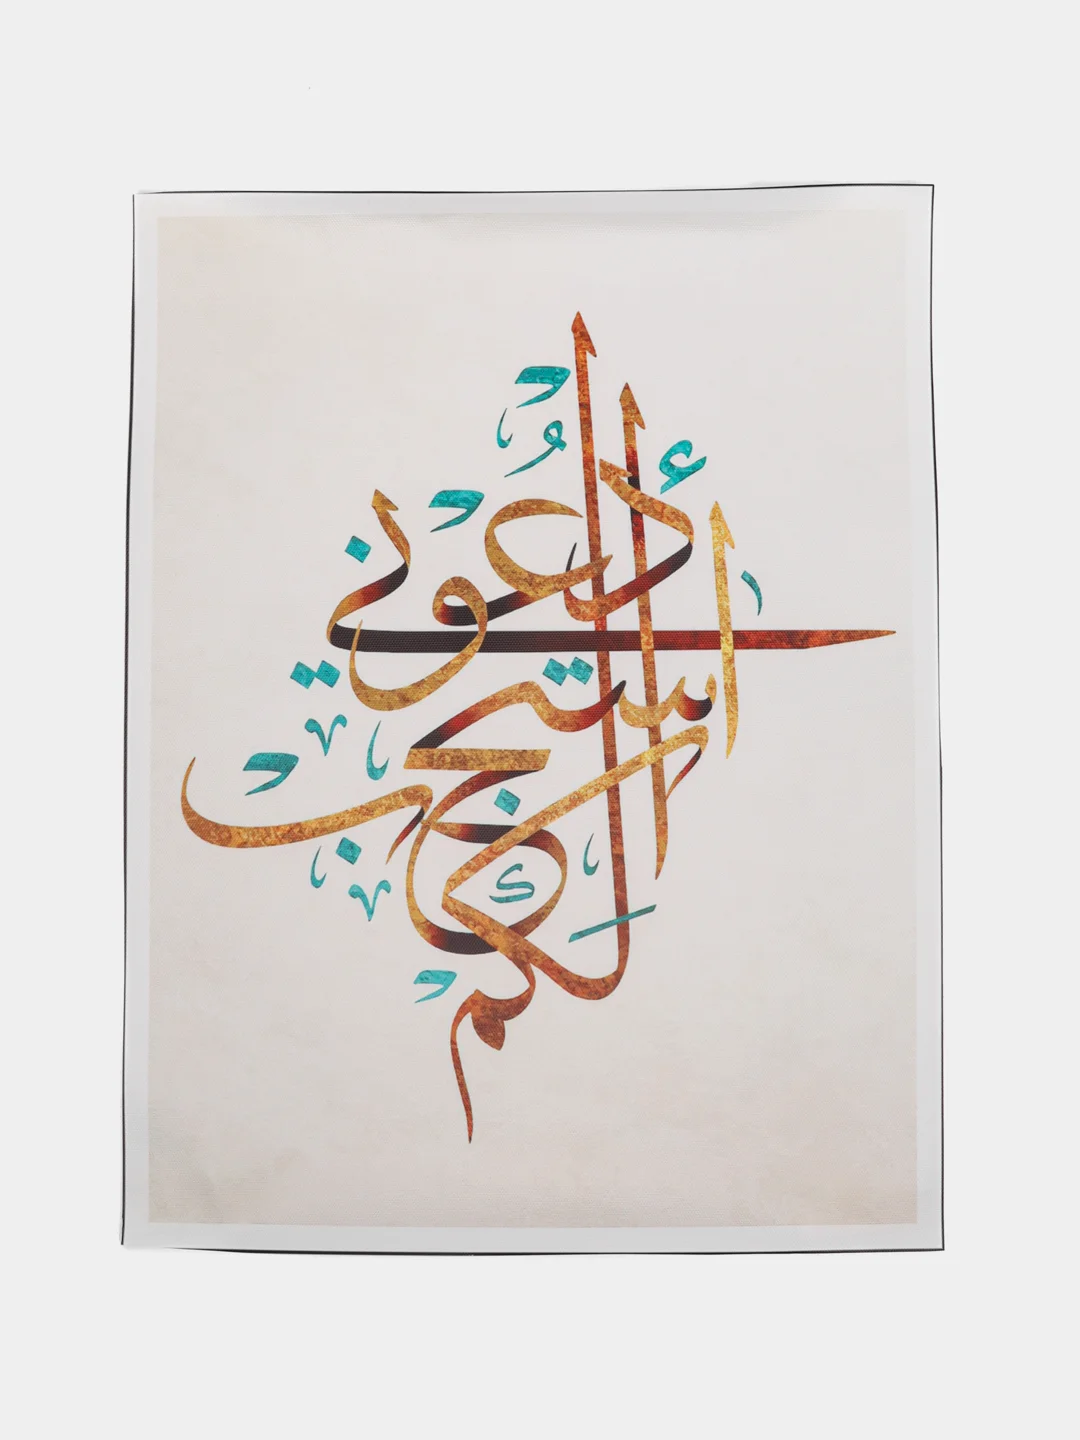 أدعوني
استجب
لكم